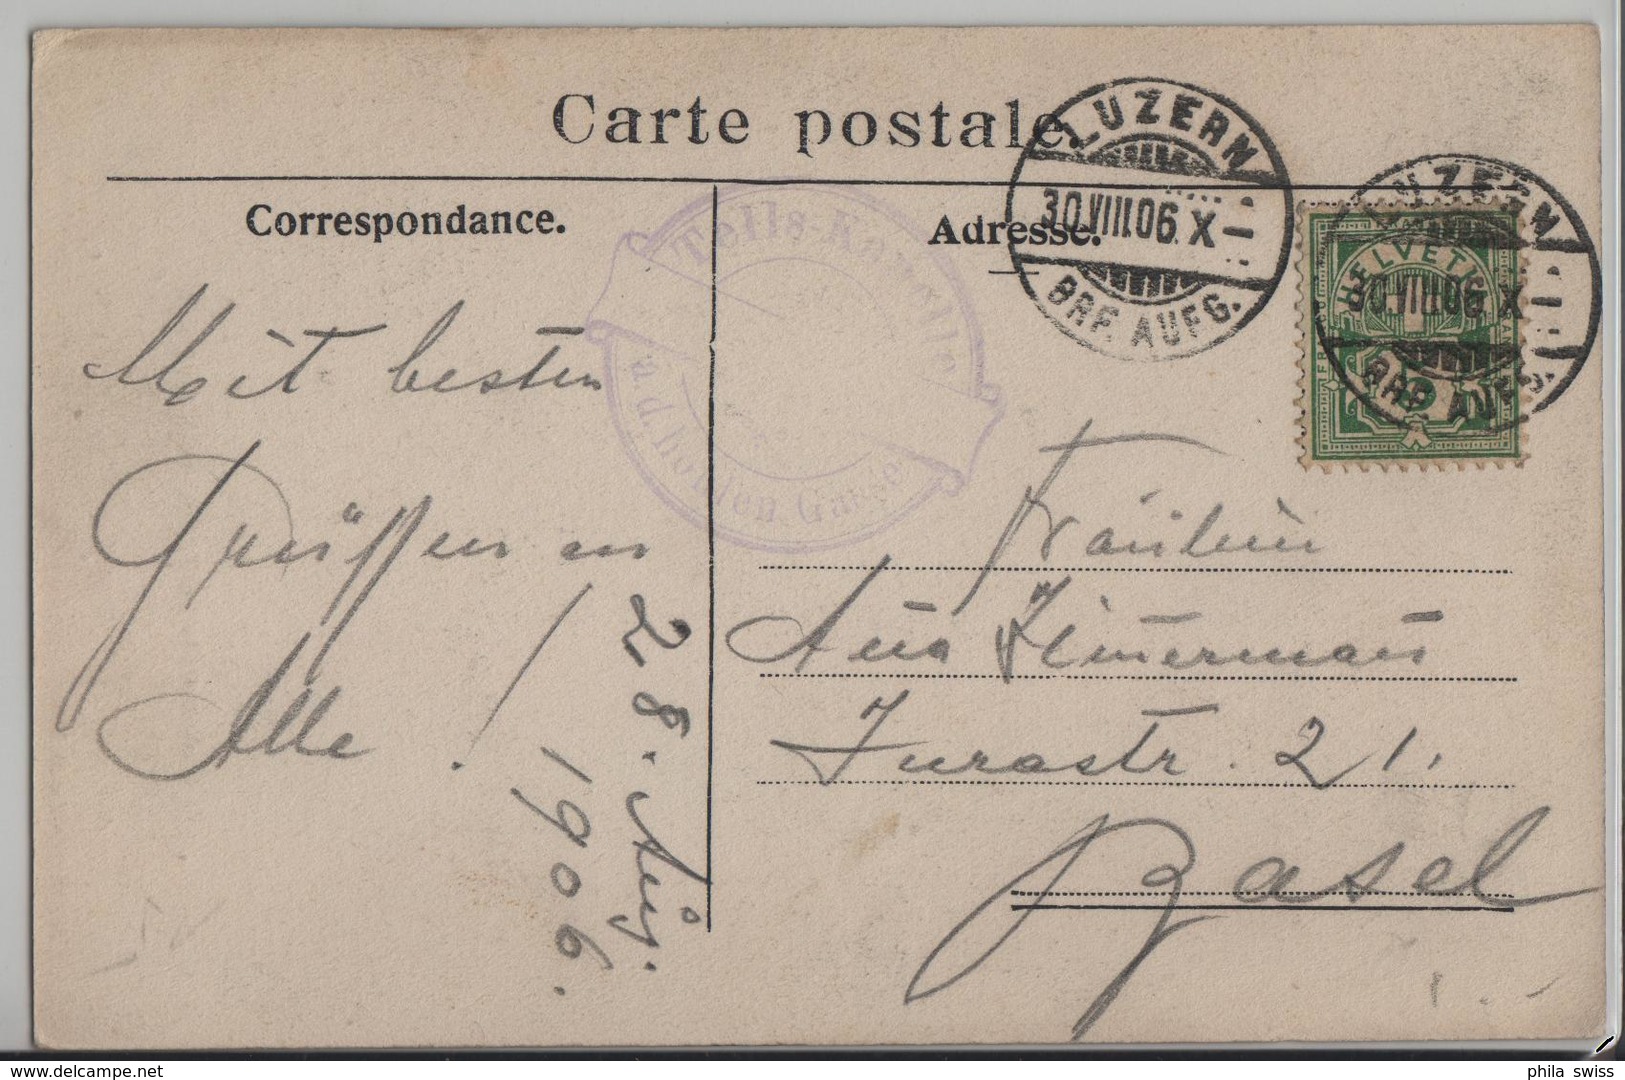 Carte postale.
Correspondance.
Adresse.
LUZERN
30.VIII.06.X
BRF. AUFG.
LUZERN
30.VIII.06.X
BRF. AUFG.
HELVETIA
FRANCO
5
Tells-Kapelle
a. d. hohlen Gasse
Mit besten
Grüssen an
Alle !
28. Aug.
1906.
Fräulein
Ana Zimerman
Jurastr. 21.
Basel
phila swiss